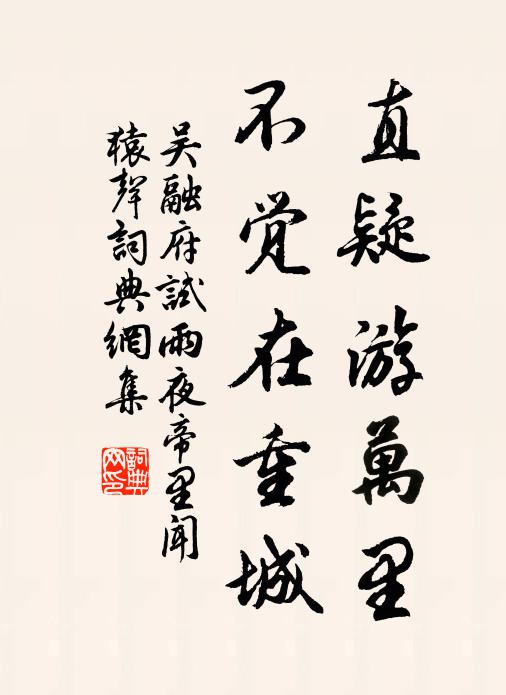 直疑游萬里
不觉在重城
吴融府試雨夜帝里闻
猿聲詞典網集
詞典网印